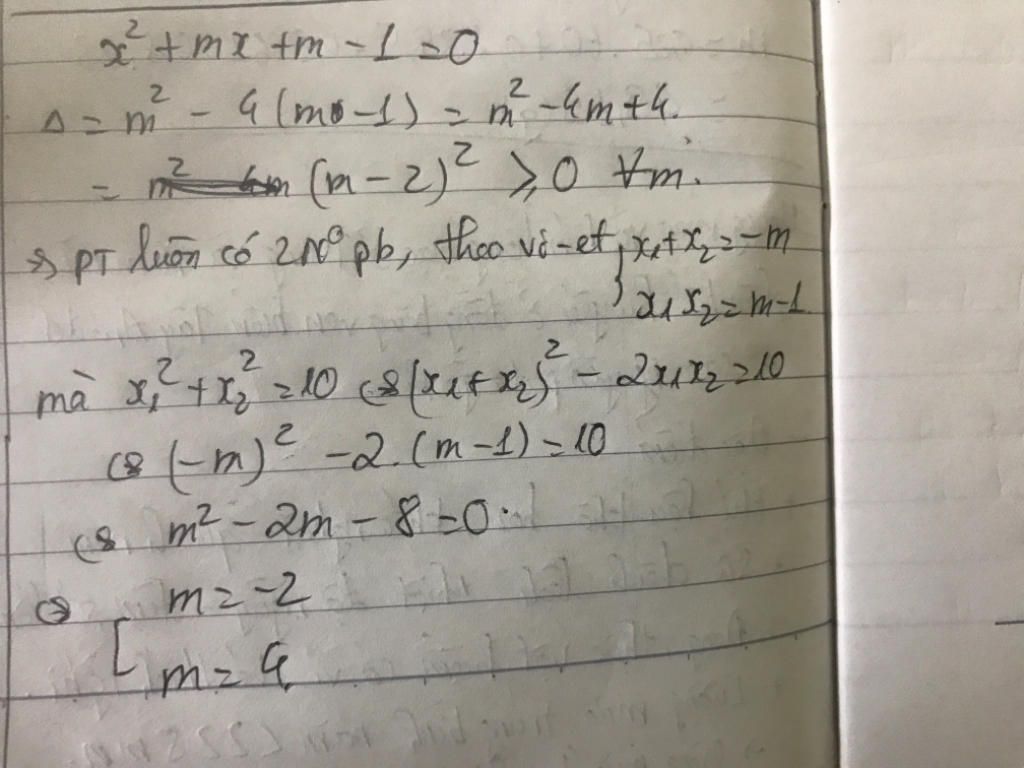 x² + mx + m - 1 = 0
Δ = m² - 4(m - 1) = m² - 4m + 4.
= (m - 2)² ⩾ 0 ∀m.
=> PT luôn có 2N⁰ pb, theo vi-et { x₁ + x₂ = -m
x₁x₂ = m - 1
mà x₁² + x₂² = 10 <=> (x₁ + x₂)² - 2x₁x₂ = 10
<=> (-m)² - 2.(m - 1) = 10
<=> m² - 2m - 8 = 0.
<=> [ m = -2
m = 4